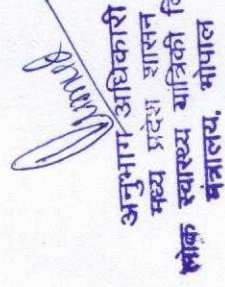 अनुभाग अधिकारी
मध्य प्रदेश शासन
लोक स्वास्थ्य यांत्रिकी वि
मंत्रालय, भोपाल